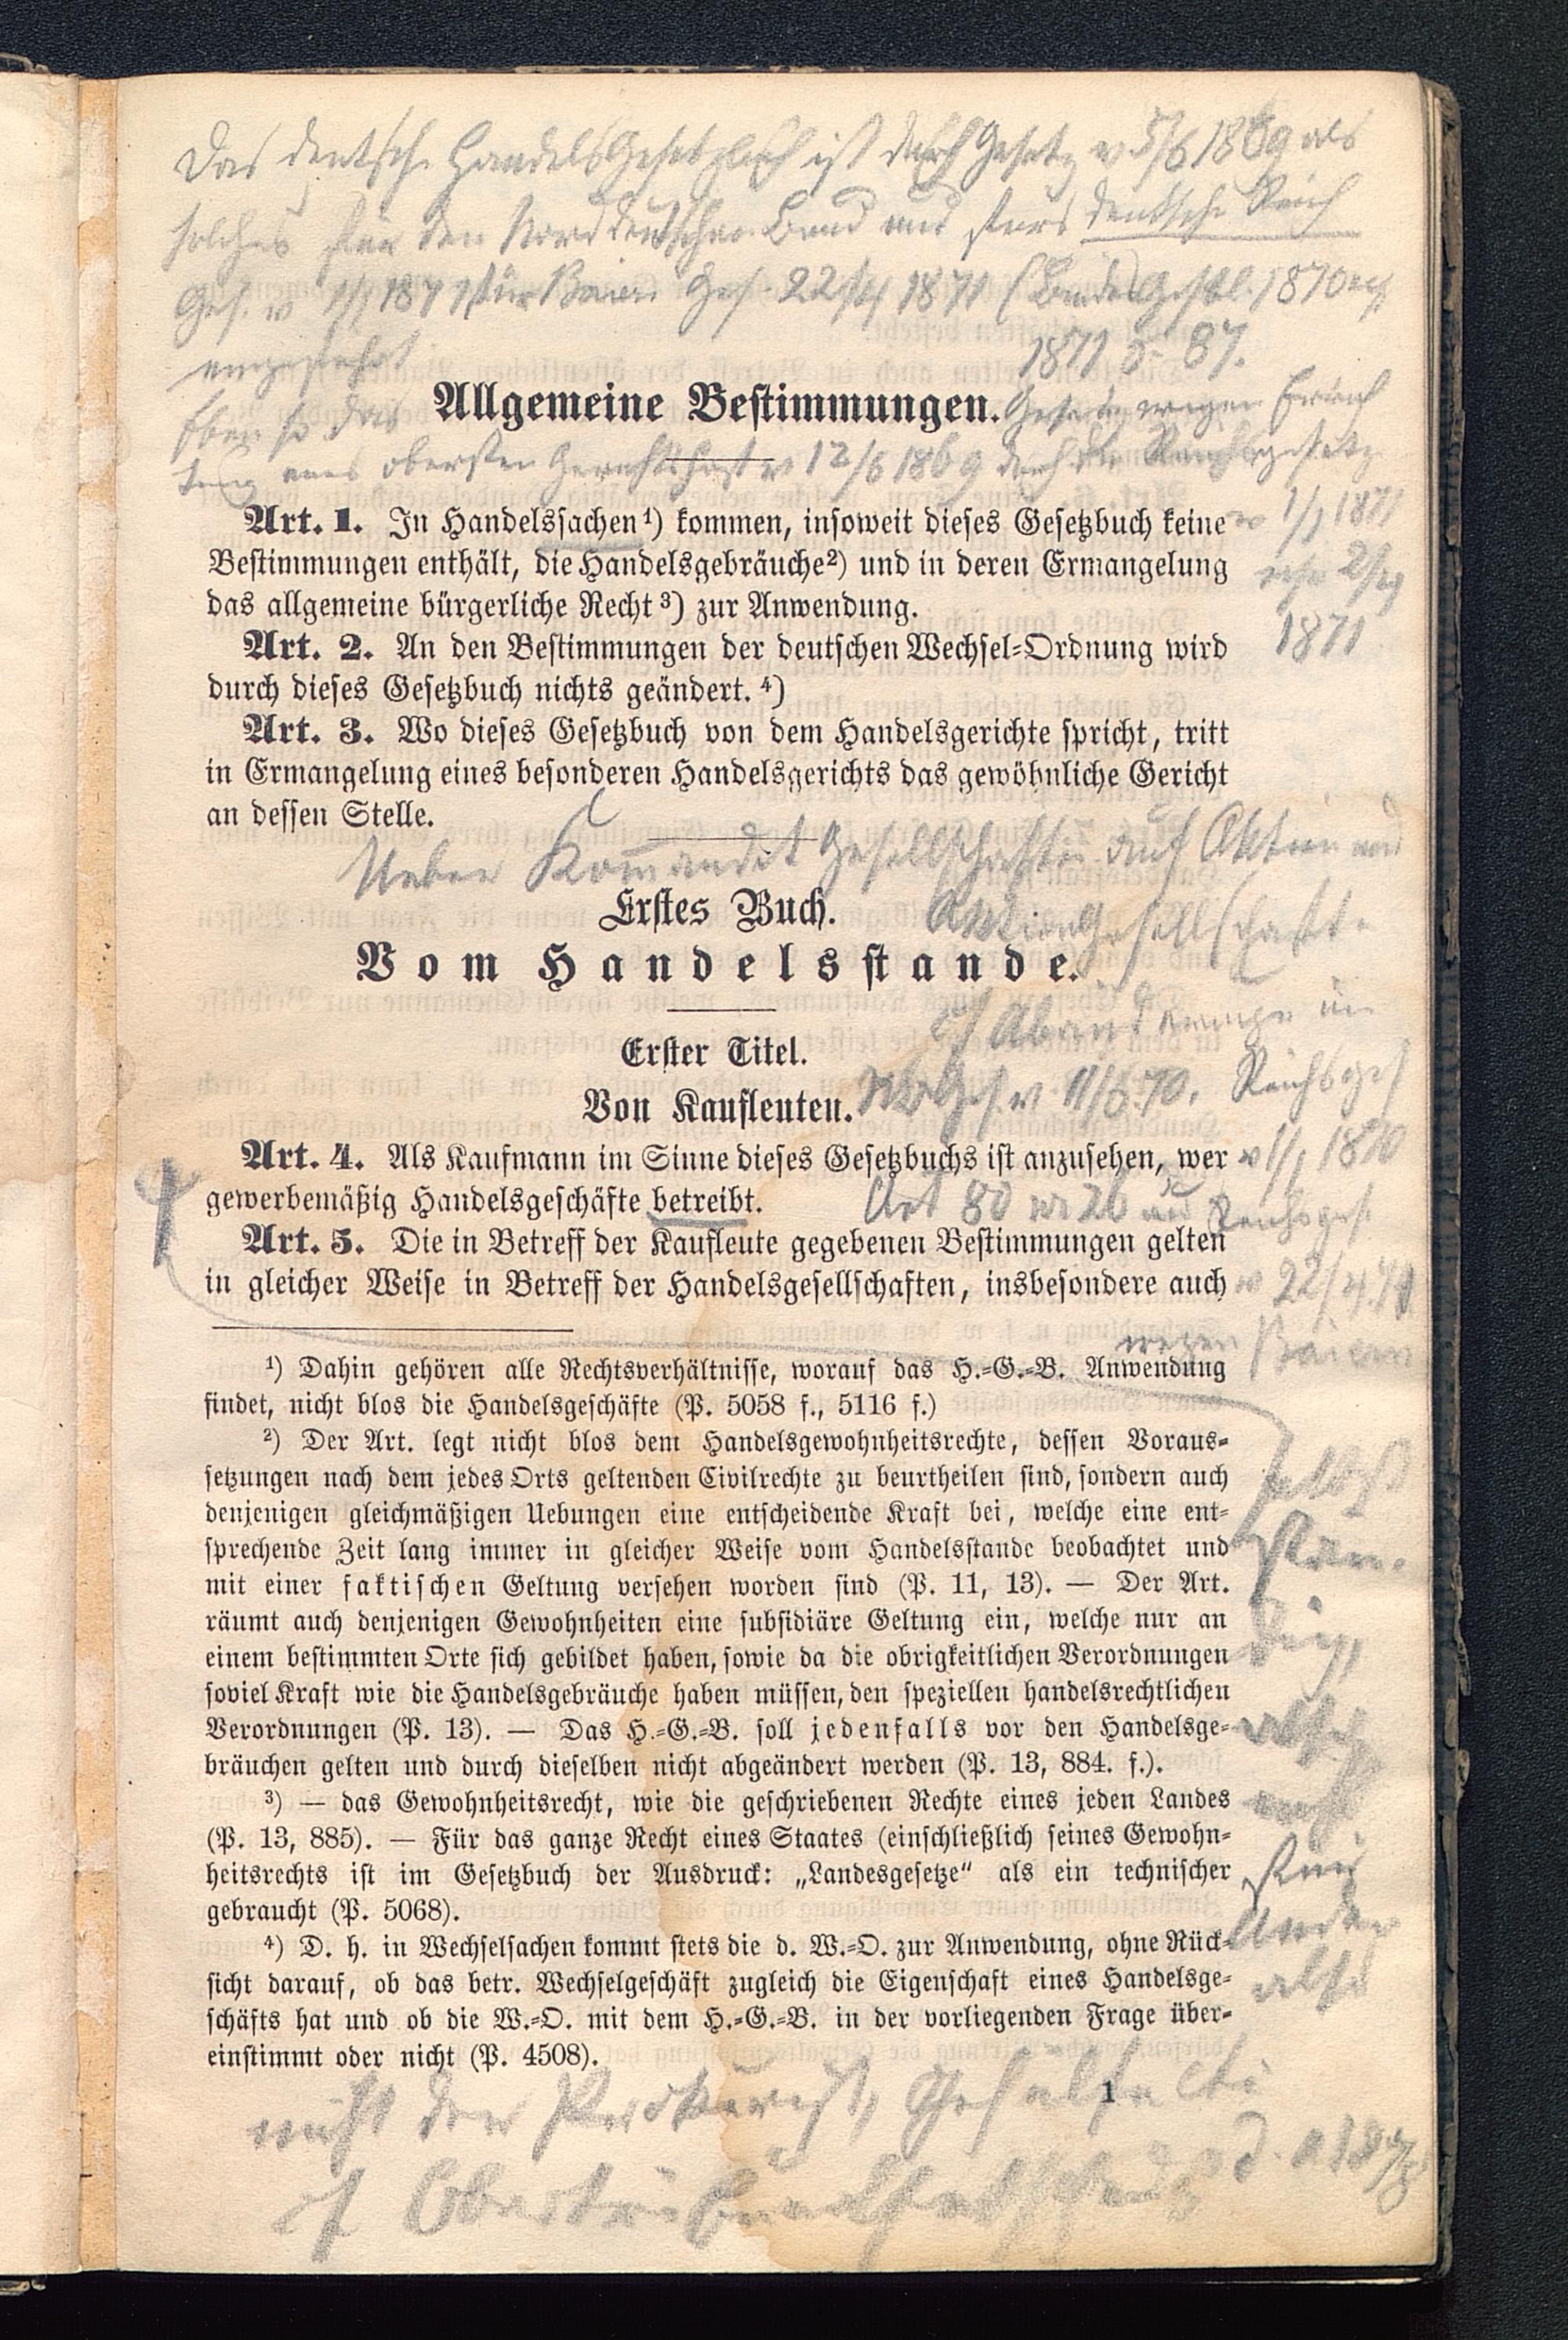 Das deutsche Handels Gesetzbuch ist durch Gesetz v 5/6 1869 als
solches für den Norddeutschen Bund und fürs deutsche Reich
Ges. v 1/1 1871 für Baiern Ges. 22/4 1871 (Bundes Gesbl. 1870
eingeführt
1871 S. 87.
Allgemeine Bestimmungen.
Ebenso das Gesetz wegen Errich
tung eines obersten Gerichtshofs v 12/6 1869 durch die Reichsgesetze
v 1/1 1871
1871
Art. 1. In Handelssachen¹) kommen, insoweit dieses Gesetzbuch keine
Bestimmungen enthält, die Handelsgebräuche²) und in deren Ermangelung
das allgemeine bürgerliche Recht³) zur Anwendung.
Art. 2. An den Bestimmungen der deutschen Wechsel-Ordnung wird
durch dieses Gesetzbuch nichts geändert.⁴)
Art. 3. Wo dieses Gesetzbuch von dem Handelsgerichte spricht, tritt
in Ermangelung eines besonderen Handelsgerichts das gewöhnliche Gericht
an dessen Stelle.
Ueber Kommandit Gesellschaften auf Aktien und
Aktien Gesellschaften
Erstes Buch.
Vom Handelsstande.
cf Abänderungen im
Erster Titel.
Ges. v. 11/6.70. Reichsges
Von Kaufleuten.
v 1/1 1870
Art 80 und Reichsges.
v 22/4.71
wegen Baiern
Art. 4. Als Kaufmann im Sinne dieses Gesetzbuchs ist anzusehen, wer
gewerbemäßig Handelsgeschäfte betreibt.
Art. 5. Die in Betreff der Kaufleute gegebenen Bestimmungen gelten
in gleicher Weise in Betreff der Handelsgesellschaften, insbesondere auch
¹) Dahin gehören alle Rechtsverhältnisse, worauf das H.-G.-B. Anwendung
findet, nicht blos die Handelsgeschäfte (P. 5058 f., 5116 f.)
²) Der Art. legt nicht blos dem Handelsgewohnheitsrechte, dessen Voraus-
setzungen nach dem jedes Orts geltenden Civilrechte zu beurtheilen sind, sondern auch
denjenigen gleichmäßigen Uebungen eine entscheidende Kraft bei, welche eine ent-
sprechende Zeit lang immer in gleicher Weise vom Handelsstande beobachtet und
mit einer faktischen Geltung versehen worden sind (P. 11, 13). — Der Art.
räumt auch denjenigen Gewohnheiten eine subsidiäre Geltung ein, welche nur an
einem bestimmten Orte sich gebildet haben, sowie da die obrigkeitlichen Verordnungen
soviel Kraft wie die Handelsgebräuche haben müssen, den speziellen handelsrechtlichen
Verordnungen (P. 13). — Das H.-G.-B. soll jedenfalls vor den Handelsge-
bräuchen gelten und durch dieselben nicht abgeändert werden (P. 13, 884. f.).
³) — das Gewohnheitsrecht, wie die geschriebenen Rechte eines jeden Landes
(P. 13, 885). — Für das ganze Recht eines Staates (einschließlich seines Gewohn-
heitsrechts ist im Gesetzbuch der Ausdruck: „Landesgesetze“ als ein technischer
gebraucht (P. 5068).
⁴) D. h. in Wechselsachen kommt stets die d. W.-O. zur Anwendung, ohne Rück-
sicht darauf, ob das betr. Wechselgeschäft zugleich die Eigenschaft eines Handelsge-
schäfts hat und ob die W.-O. mit dem H.-G.-B. in der vorliegenden Frage über-
einstimmt oder nicht (P. 4508).
selbst
stän-
dig,
nicht
für
Andere
also
nicht der Prokurist, Gehülfe etc
1
cf Obertribunal